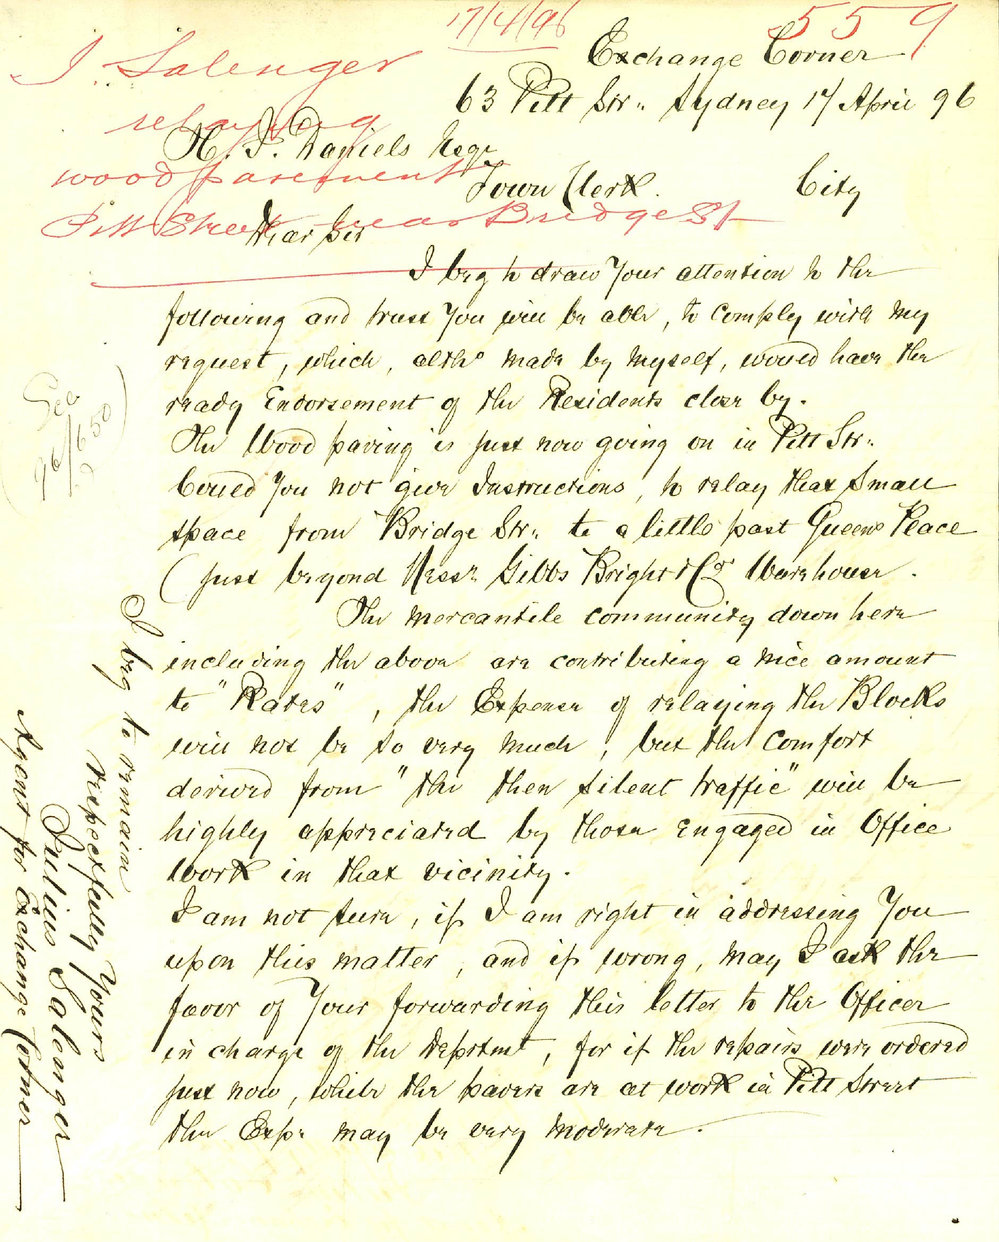 17/4/96
559
J. Salenger
relaying
wood pavement
Pitt Street near Bridge St
Exchange Corner
63 Pitt Str: Sydney 17 April 96
H. J. Daniels Esqe
Town Clerk. City
Dear Sir
I beg to draw Your attention to the
following and trust You will be able, to comply with my
request, which, altho made by myself, would have the
ready Endorsement of the Residents close by.
The Wood paving is just now going on in Pitt Str:
Could You not give Instructions, to relay that small
space from Bridge Str: to a little past Queens Place
(just beyond Messrs Gibbs Bright & Co's Warehouse.
The mercantile community down here
including the above are contributing a nice amount
to "Rates", the Expense of relaying the Blocks
will not be so very much, but the comfort
derived from "the then silent traffic" will be
highly appreciated by those engaged in Office
work in that vicinity.
I am not sure, if I am right in addressing You
upon this matter, and if wrong, may I ask the
favor of Your forwarding this letter to the Officer
in charge of the Deprtmt, for if the repairs were ordered
just now, while the pavers are at work in Pitt Street
the Expe may be very moderate.
I beg to remain
respectfully Yours
Julius Salenger
Agent for Exchange Corner
See
96/1650